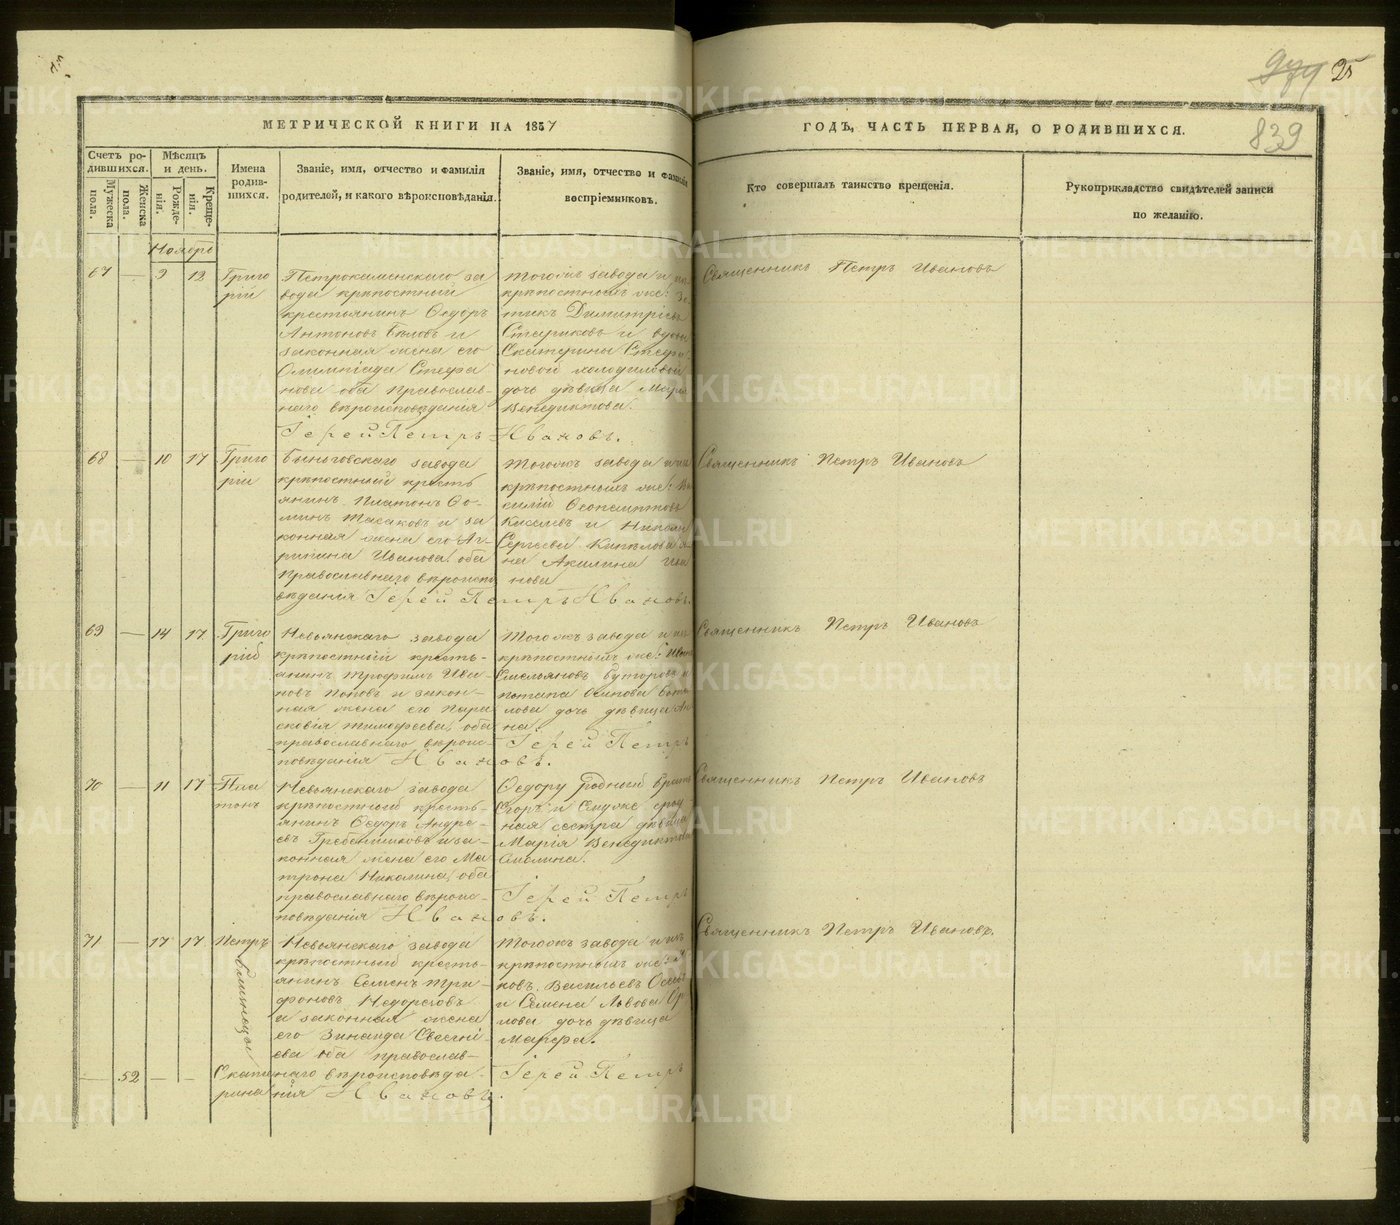 25
839
МЕТРИЧЕСКОЙ КНИГИ НА 1857
ГОДЪ, ЧАСТЬ ПЕРВАЯ, О РОДИВШИХСЯ.
Счетъ ро-
дившихся.
Мужеска
пола.
Женска
пола.
Мѣсяцъ
и день.
Рожде-
нія.
Креще-
нія.
Имена
родив-
шихся.
Званіе, имя, отчество и фамилія
родителей, и какого вѣроисповѣданія.
Званіе, имя, отчество и фамилія
воспріемниковъ.
Кто совершалъ таинство крещенія.
Рукоприкладство свидѣтелей записи
по желанію.
Ноябрь
67 — 9 12
Григо
рій
Петрокаменскаго за
вода крѣпостный
крестоянинъ Ѳедоръ
Антоновъ Бѣловъ и
законная жена его
Олимпіада Стефа
нова оба православ-
наго вѣроисповѣданія
Тогожъ завода и
крѣпостныхъ же:
тикъ Димитріевъ
Стариковъ и вдовы
Екатерины Стефа
новой Холодиловой
дочь дѣвица Марія
Венедиктова.
Іерей Петръ Ивановъ.
Священникъ Петръ Ивановъ
68 — 10 17
Григо
рій
Быньговскаго завода
крѣпостный кресть
янинъ Платонъ Ѳо-
минъ Тасаковъ и за
конная жена его Аг-
рипина Иванова, оба
православнаго вѣроиспо
вѣданія Іерей Петръ Ивановъ.
Тогожъ завода и
крѣпостныхъ же:
Киселевъ и
Сергѣева
на Акилина
нова
Священникъ Петръ Ивановъ
69 — 14 17
Григо
рій
Невьянскаго завода
крѣпостный кресть-
янинъ Трофимъ Ива
новъ Поповъ и закон-
ная жена его Пара
скевія Тимофеева, оба
православнаго вѣроис-
повѣданія
Тогожъ завода и
крѣпостныхъ же:
Емельяновъ Буторовъ и
потапа Осипова
лова дочь дѣвица Ан
на.
Іерей Петръ
Ивановъ.
Священникъ Петръ Ивановъ
70 — 11 17
Пла
тонъ
Невьянскаго завода
крѣпостный кресть-
янинъ Ѳедоръ Андре-
евъ Гребенщиковъ и за-
конная жена его Ма
трона Николина, оба
православнаго вѣроис-
повѣданія
Ѳедору родный братъ
Егоръ и
ная сестра дѣвица
Марія Венедиктова
Смолина.
Іерей Петръ
Ивановъ.
Священникъ Петръ Ивановъ
71 — 17 17
Петръ
близнецы
Невьянскаго завода
крѣпостный кресть-
янинъ Семенъ Три-
фоновъ Недорезовъ
и законная жена
его Зинаида Евсегні-
ева оба православ-
наго вѣроисповѣда-
нія
Тогожъ завода и ихъ
крѣпостныхъ же:
ковъ Васильевъ
и Семена Львова Ор
лова дочь дѣвица
Марфа.
Іерей Петръ
Ивановъ.
Священникъ Петръ Ивановъ.
— 52 — —
Екате
рина
METRIKI.GASO-URAL.RU